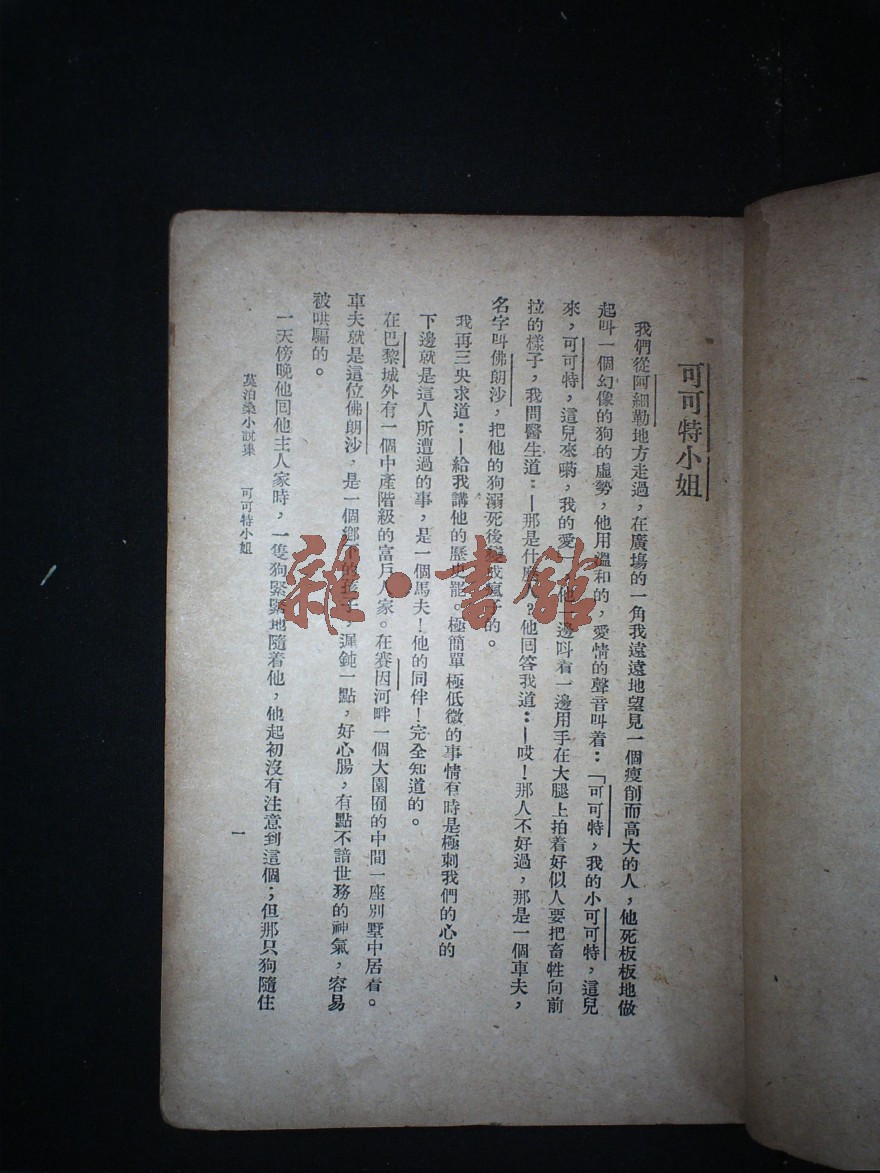 可可特小姐
我們從阿細勒地方走過，在廣場的一角我遠遠地望見一個瘦削而高大的人，他死板板地做
起叫一個幻像的狗的虛勢，他用溫和的，愛情的聲音叫着：「可可特，我的小可可特，這兒
來，可可特，這兒來喲，我的愛」他一邊叫着一邊用手在大腿上拍着好似人要把畜牲向前
拉的樣子，我問醫生道：—那是什麼人？他回答我道：—哎！那人不好過，那是一個車夫，
名字叫佛朗沙，把他的狗溺死後變成瘋子的。
我再三央求道：—給我講他的歷史罷。極簡單極低微的事情有時是極刺我們的心的
下邊就是這人所遭過的事，是一個馬夫！他的同伴！完全知道的。
在巴黎城外有一個中產階級的富戶人家。在賽因河畔一個大園囿的中間一座別墅中居着。
車夫就是這位佛朗沙，是一個鄉下的孩子，遲鈍一點，好心腸，有點不諳世務的神氣，容易
被哄騙的。
一天傍晚他回他主人家時，一隻狗緊緊地隨着他，他起初沒有注意到這個；但那只狗隨住
莫泊桑小說集 可可特小姐
一
雜·書館